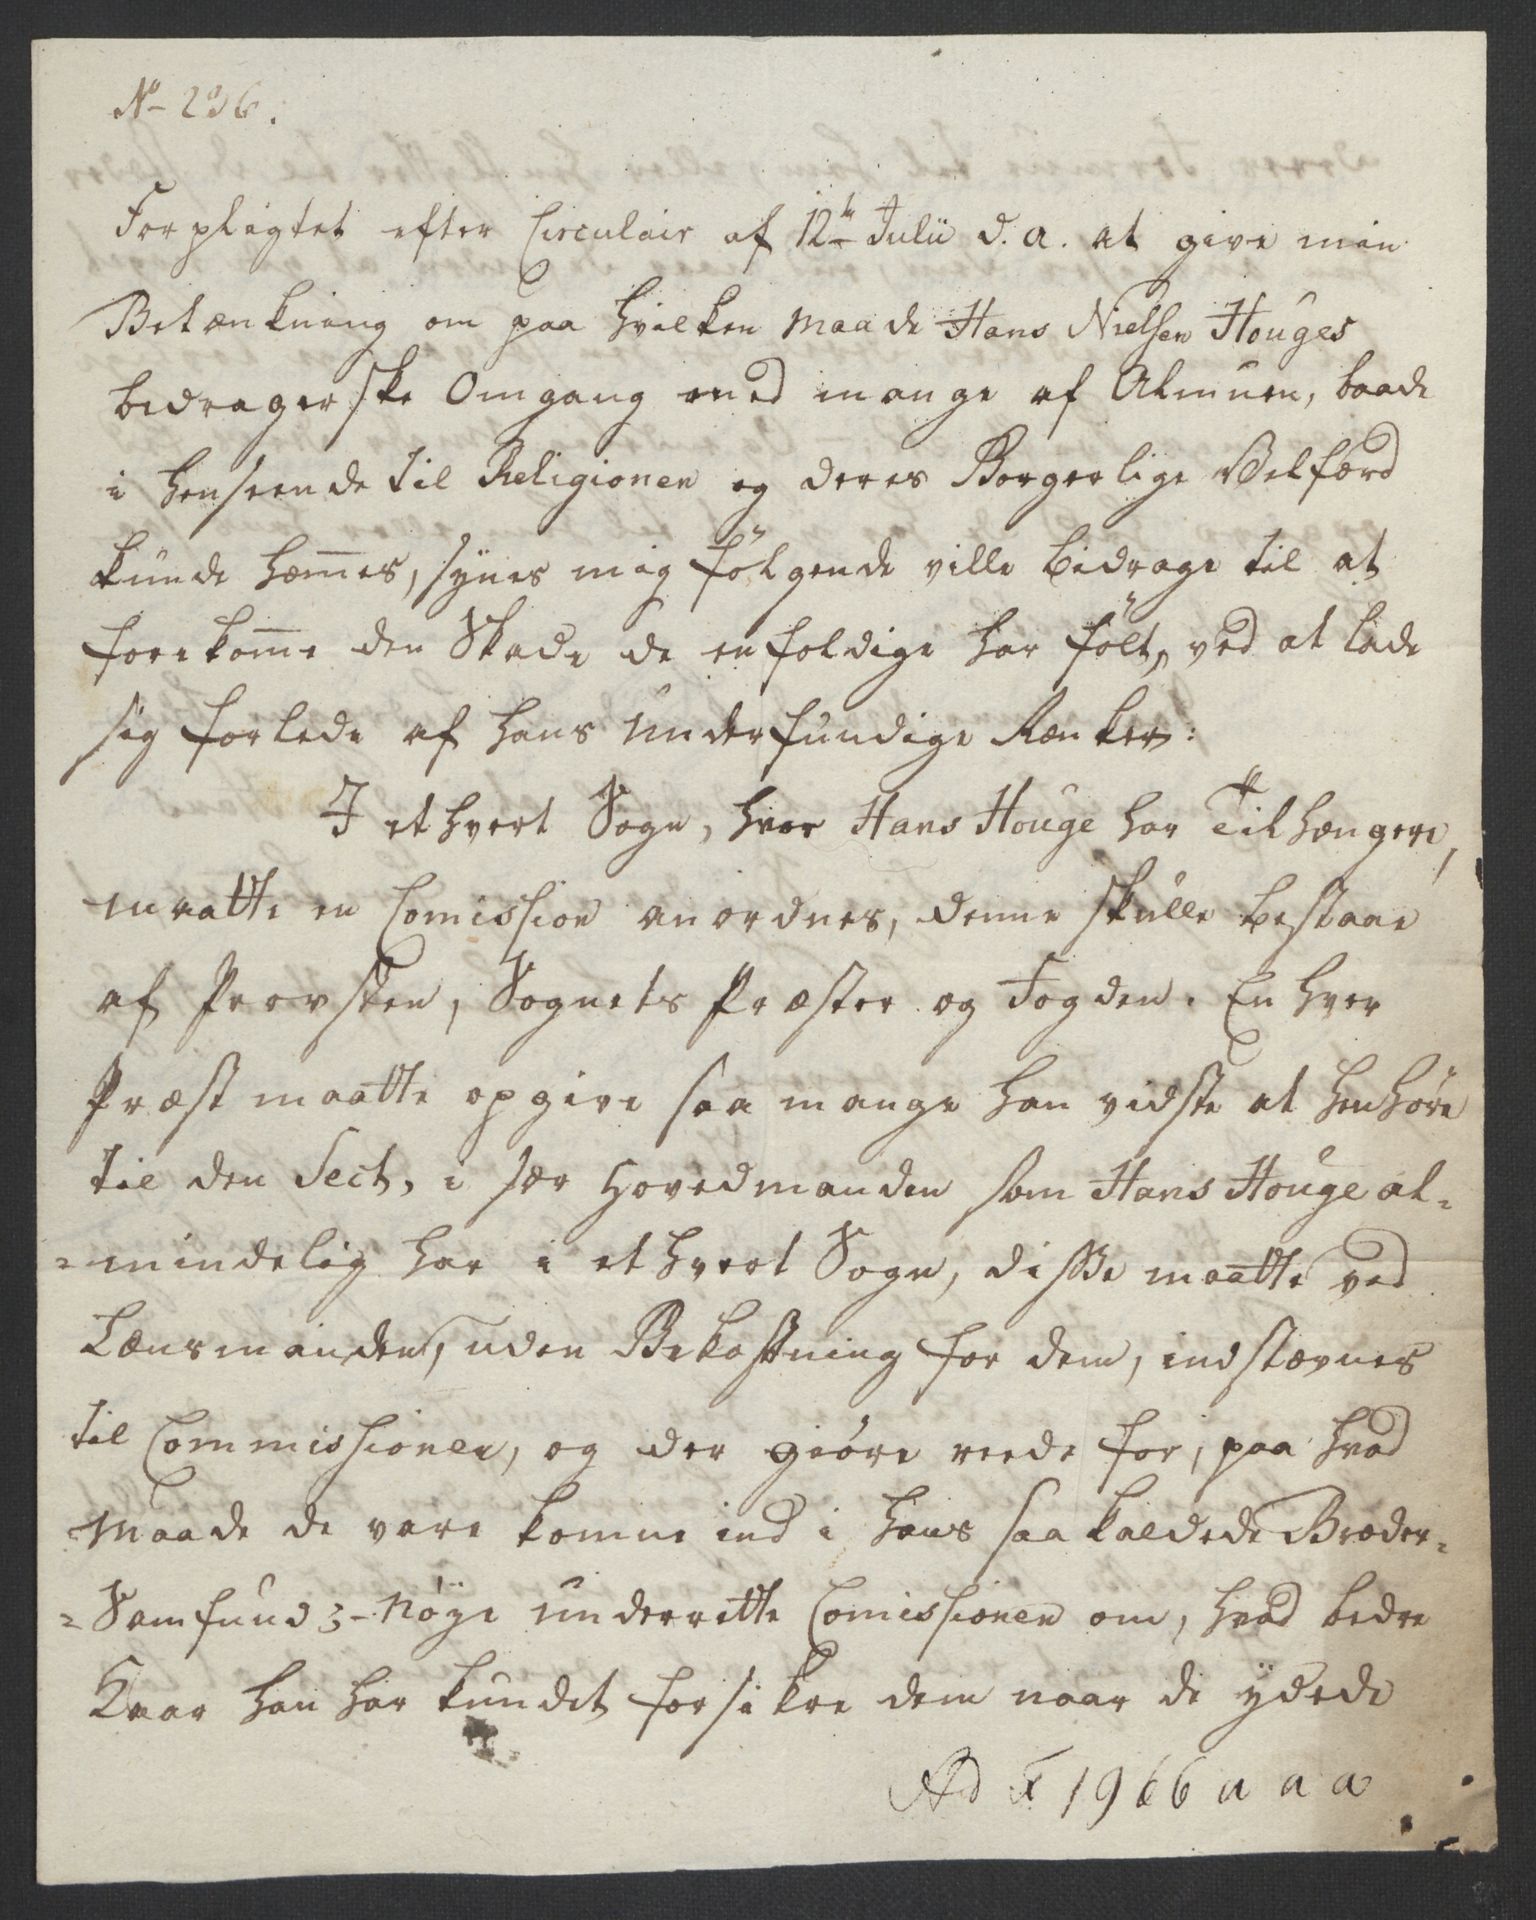 No 236.
Forpligtet efter Circulair af 12te Julii d. a. at give min
Betænkning om paa hvilken Maade Hans Nielsen Houges
bedragerske Omgang med mange af Almuen, baade
i henseende til Religionen og deres Borgerlige Velfærd
kunde hæm̅es, synes mig følgende ville bidrage til at
forekom̅e den Skade de enfoldige har følt, ved at lade
sig forlede af hans underfundige Rænker:
I ethvert Sogn, hvor Hans Houge har Tilhængere,
maatte en Comission anordnes, denne skulle bestaae
af Provsten, Sognets Præster og Fogden. Enhver
Præst maatte opgive saa mange han vidste at henhøre
til den Sect, i sær Hovedmanden som Hans Houge al=
=mindelig har i ethvert Sogn, disse maatte ved
Lænsmanden, uden Bekostning for dem, indstævnes
til Commissionen, og der giøre reede for, paa hvad
Maade de vare komne ind i hans saa kaldede Broder=
=Samfund3- nøye underrette Comissionen om, hvad bedre
Kaar han har kundet forsikre dem naar de ÿdede
Ad F 1966 a a a